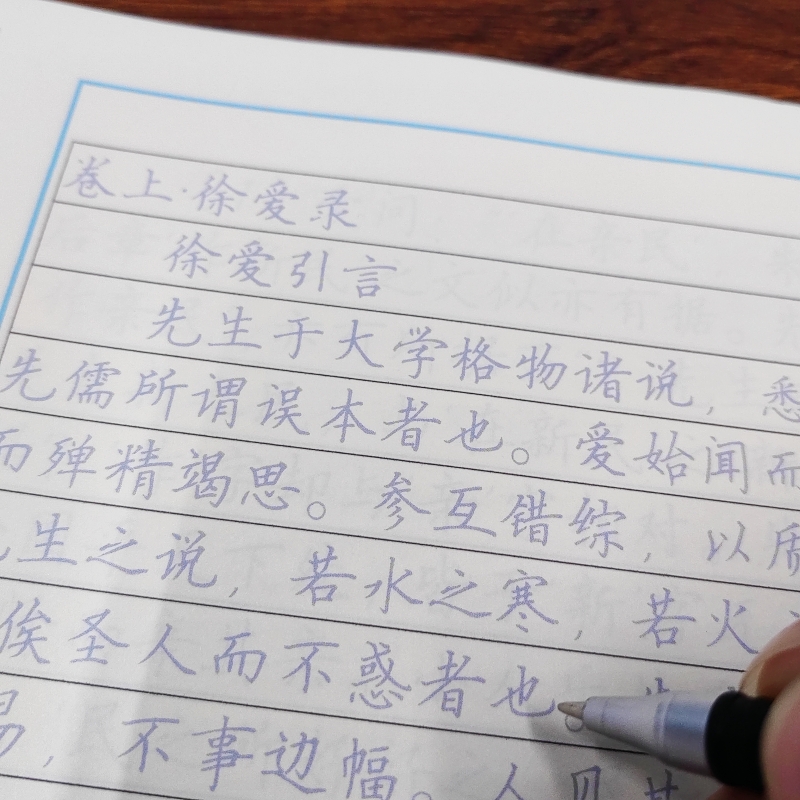 卷上·徐爱录
徐爱引言
先生于大学格物诸说，悉
先儒所谓误本者也。爱始闻而
而殚精竭思。参互错综，以质
生之说，若水之寒，若火
俟圣人而不惑者也。
易，不事边幅。人见其